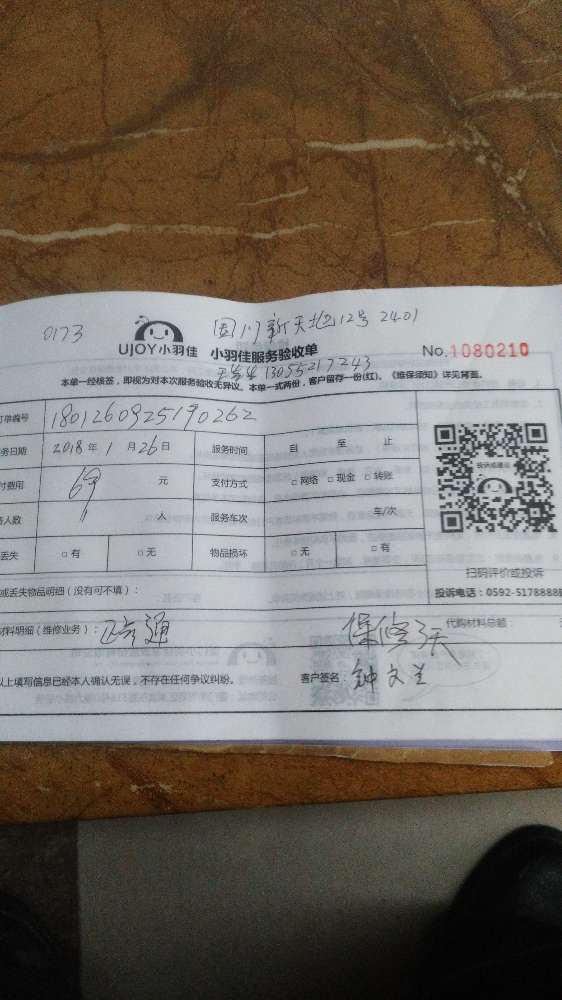 0173
国川新天地12号 2401
UJOY小羽佳 小羽佳服务验收单 No.1080210
13055217243
本单一经核签，即视为对本次服务验收无异议。本单一式两份，客户留存一份(红)。《维保须知》详见背面。
订单编号 1801260925190262
务日期 2018年1月26日 服务时间 自 至 止
付费用 69 元 支付方式 □网络 □现金 □转账
人数 1 人 服务车次 车/次
丢失 □有 □无 物品损坏 □无 □有
扫码评价或投诉
投诉电话：0592-5178888
或丢失物品明细（没有可不填）：
材料明细（维修业务）： 疏通 保修3天 代购材料总额：
以上填写信息已经本人确认无误，不存在任何争议纠纷。 客户签名：钟文兰